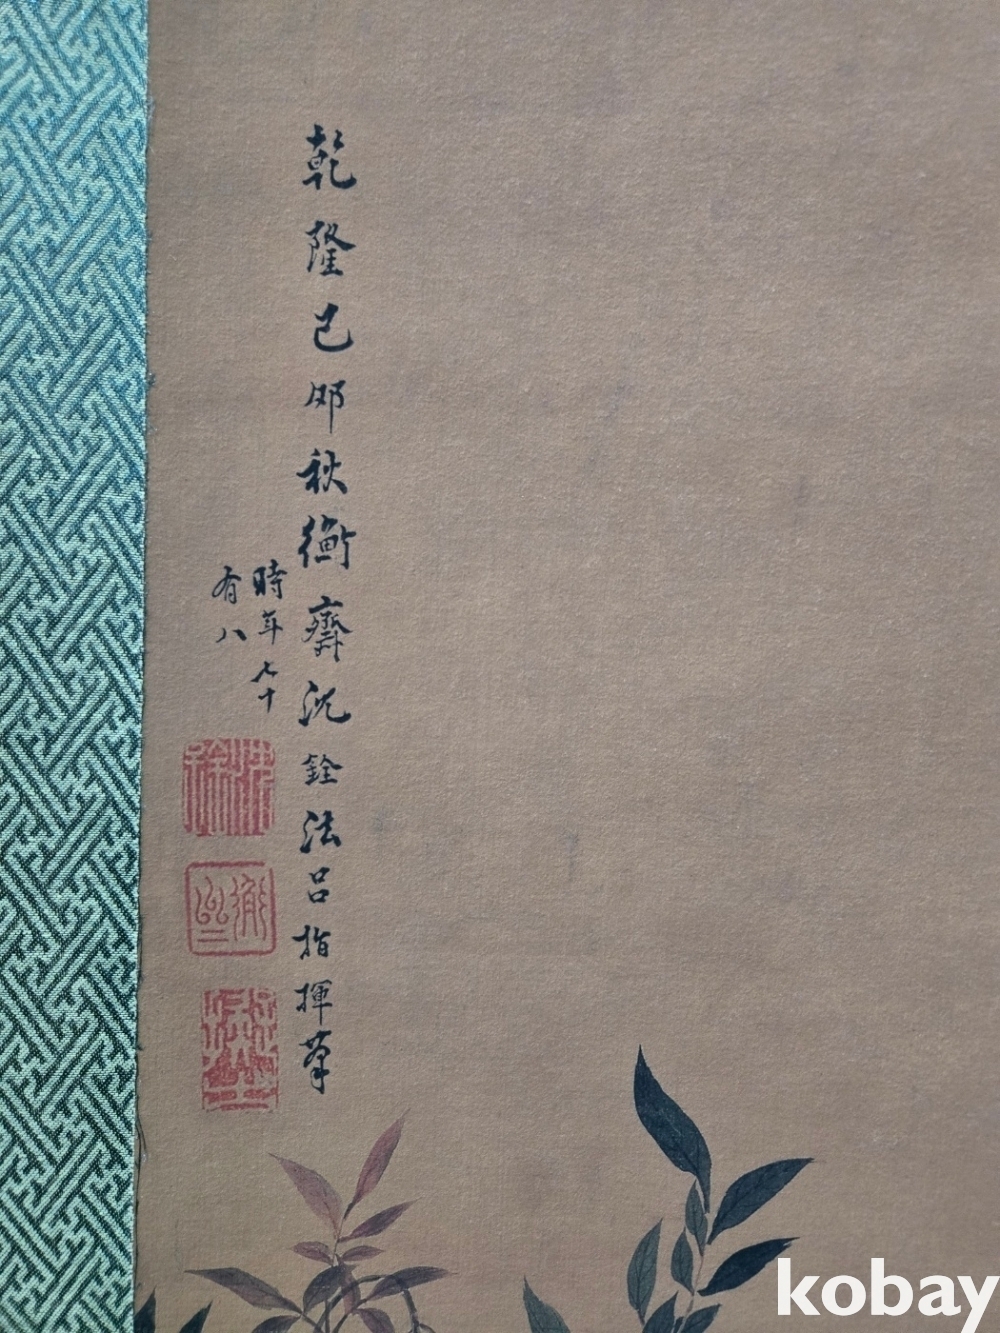 乾隆己卯秋衡齋沈銓法吕指揮筆
時年七十
有八
kobay